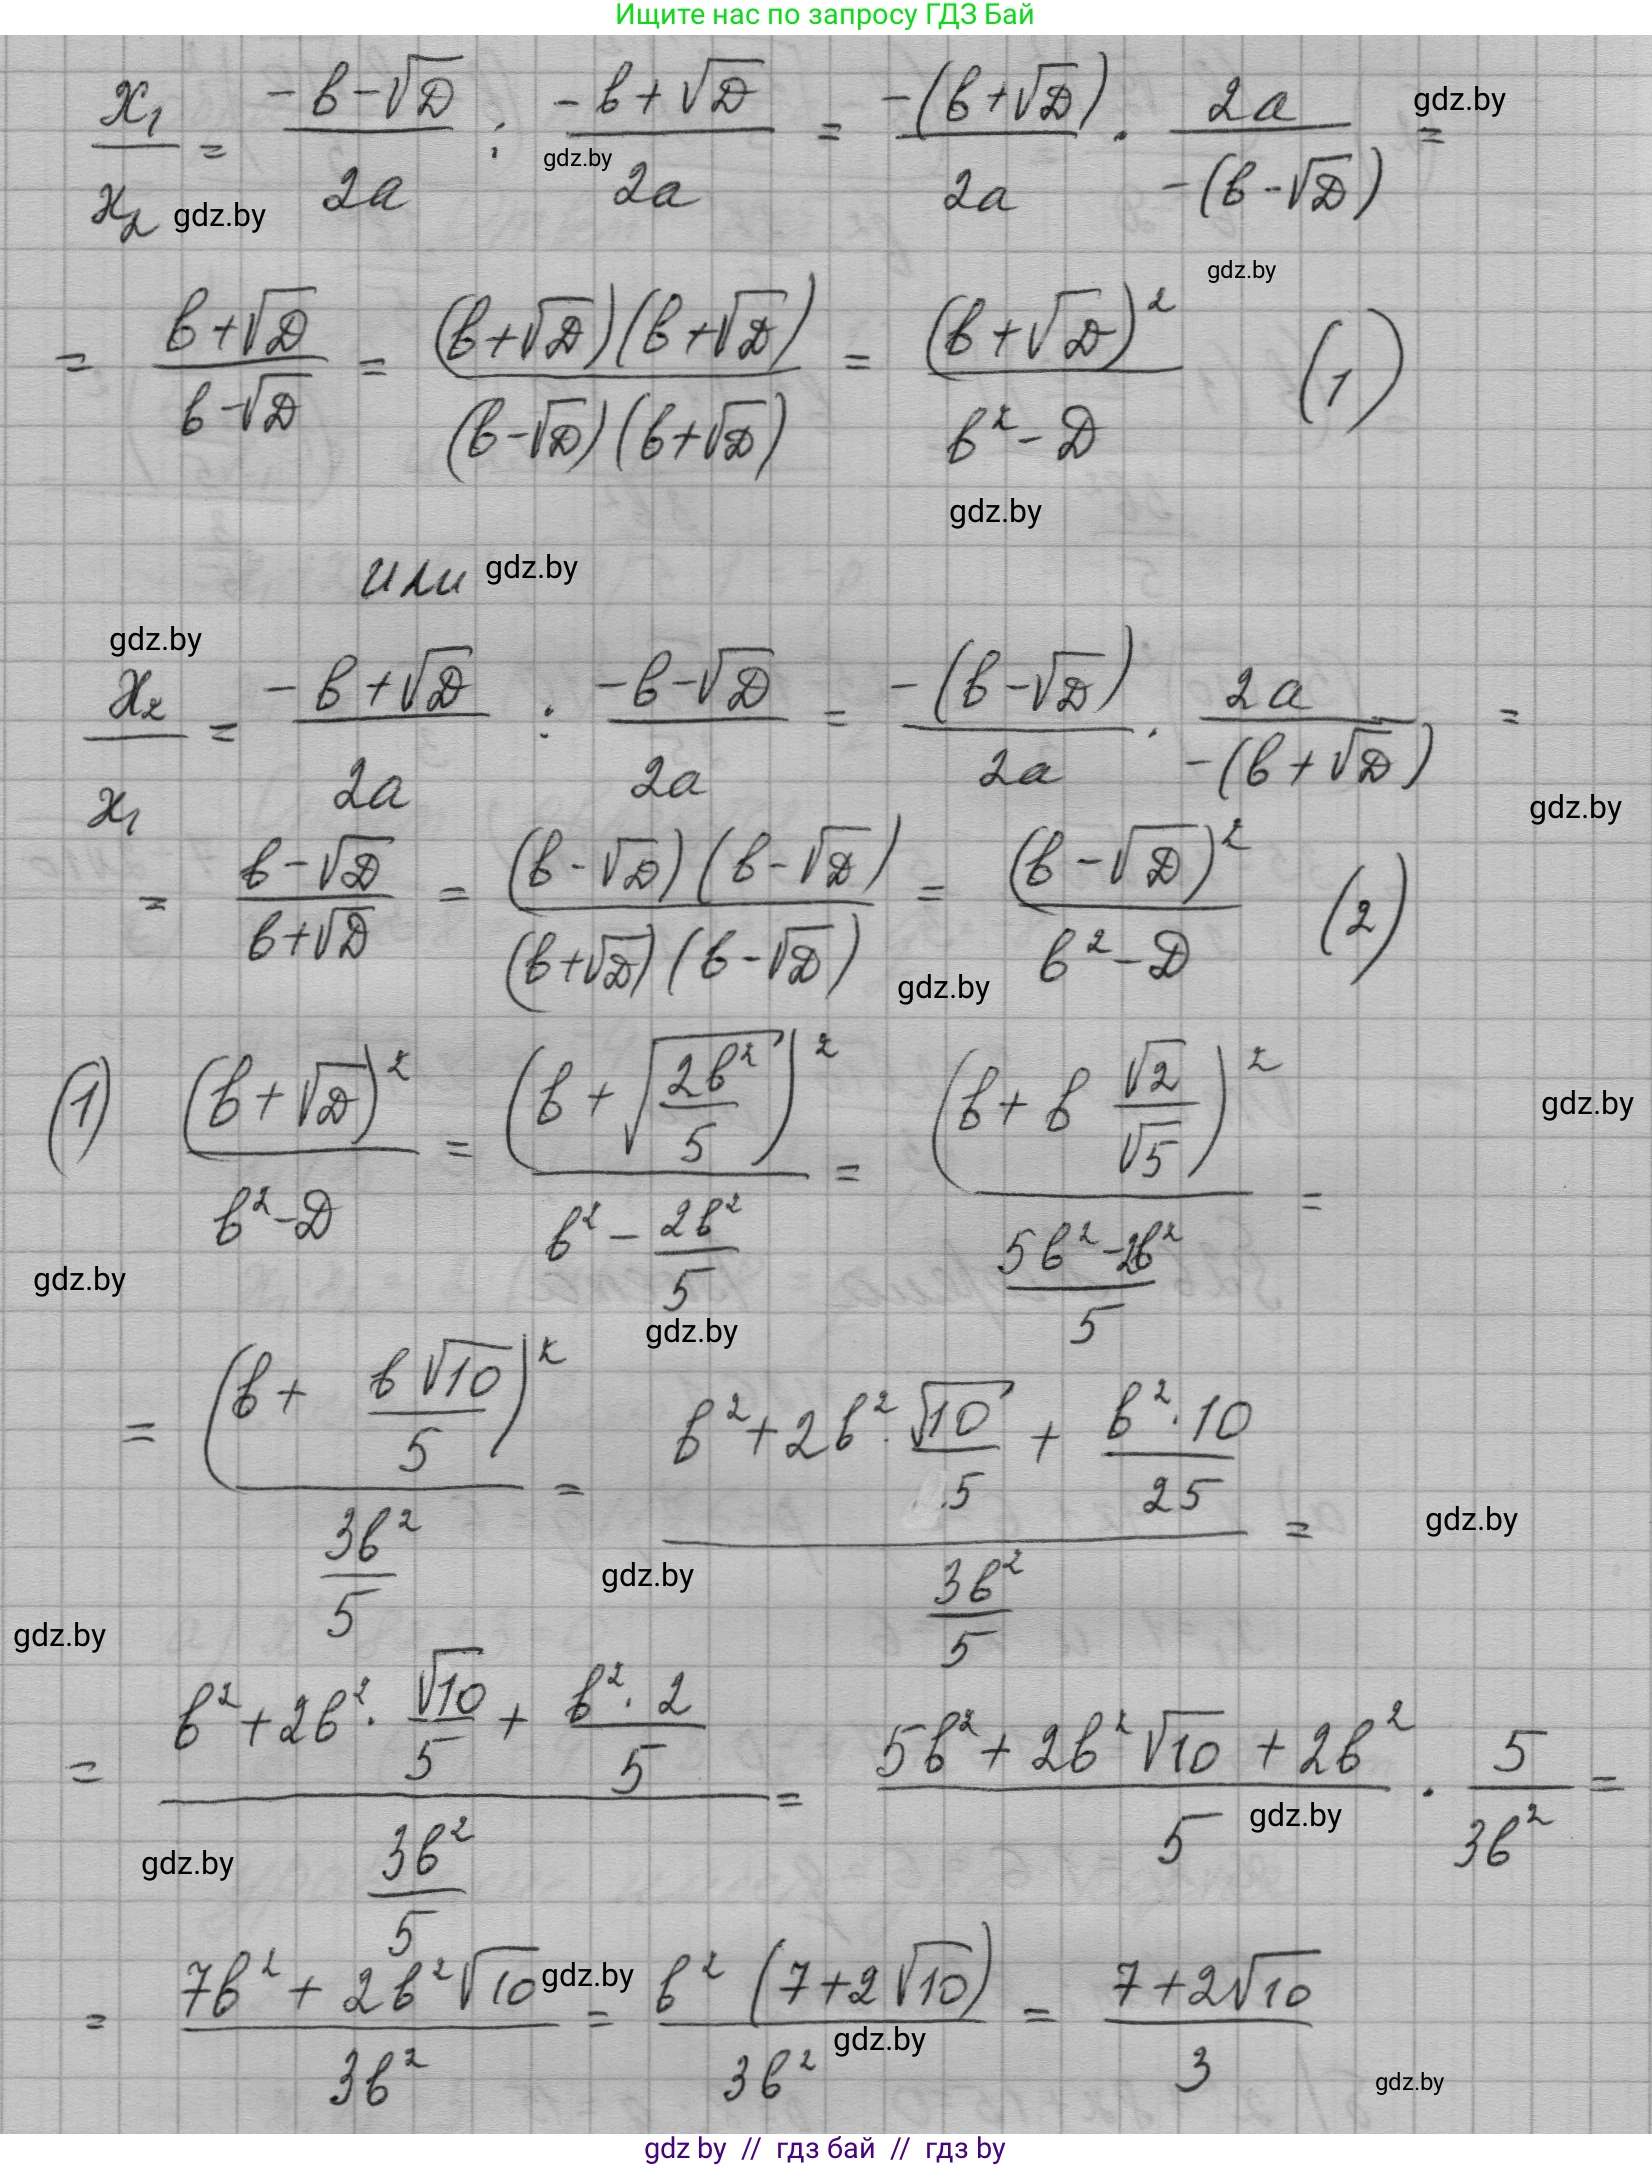 Ищите нас по запросу ГДЗ Бай
x₁/x₂ = (-b-√D)/2a : (-b+√D)/2a = -(b+√D)/2a · 2a/-(b-√D) =
gdz.by
gdz.by
gdz.by
gdz.by
= (b+√D)/(b-√D) = (b+√D)(b+√D)/(b-√D)(b+√D) = (b+√D)²/(b²-D) (1)
gdz.by
или gdz.by
gdz.by
x₂/x₁ = (-b+√D)/2a : (-b-√D)/2a = -(b-√D)/2a · 2a/-(b+√D) =
gdz.by
= (b-√D)/(b+√D) = (b-√D)(b-√D)/(b+√D)(b-√D) = (b-√D)²/(b²-D) (2)
gdz.by
(1) (b+√D)²/(b²-D) = (b+√(2b²/5))²/(b²-2b²/5) = (b+b √2/√5)²/((5b²-2b²)/5) =
gdz.by
gdz.by
gdz.by
= (b+ b√10/5)²/(3b²/5) = (b²+2b²·√10/5 + b²·10/25)/(3b²/5) =
gdz.by
gdz.by
gdz.by
= (b²+2b²·√10/5 + b²·2/5)/(3b²/5) = (5b²+2b²√10+2b²)/5 · 5/3b² =
gdz.by
gdz.by
= (7b²+2b²√10)/3b² = b²(7+2√10)/3b² = (7+2√10)/3
gdz.by
gdz.by
gdz.by
gdz by // гдз бай // гдз by